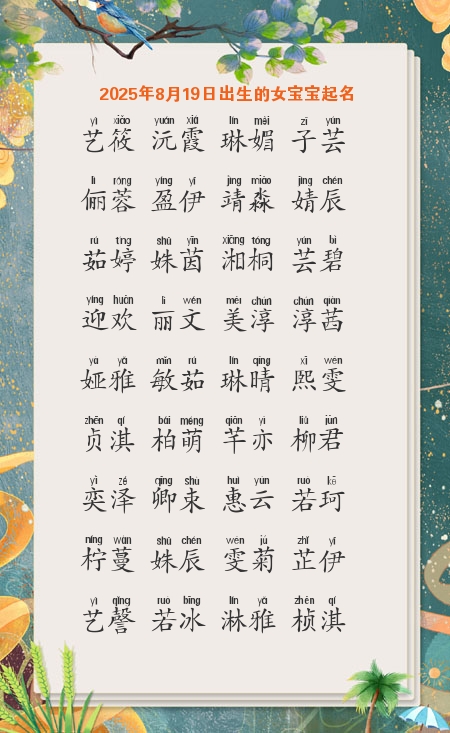 2025年8月19日出生的女宝宝起名
yì xiǎo yuán xiá lín mèi zǐ yún
艺筱 沅霞 琳媚 子芸
lì róng yíng yī jìng miǎo jìng chén
俪蓉 盈伊 靖淼 婧辰
rú tíng shū yīn xiāng tóng yún bì
茹婷 姝茵 湘桐 芸碧
yíng huān lì wén měi chún chún qiàn
迎欢 丽文 美淳 淳茜
yà yǎ mǐn rú lín qíng xī wén
娅雅 敏茹 琳晴 熙雯
zhēn qí bǎi méng qiān yì liǔ jūn
贞淇 柏萌 芊亦 柳君
yì zé qīng shù huì yún ruò kē
奕泽 卿束 惠云 若珂
níng wàn shū chén wén jú zhǐ yī
柠蔓 姝辰 雯菊 芷伊
yì qìng ruò bīng lín yǎ zhēn qí
艺謦 若冰 淋雅 桢淇